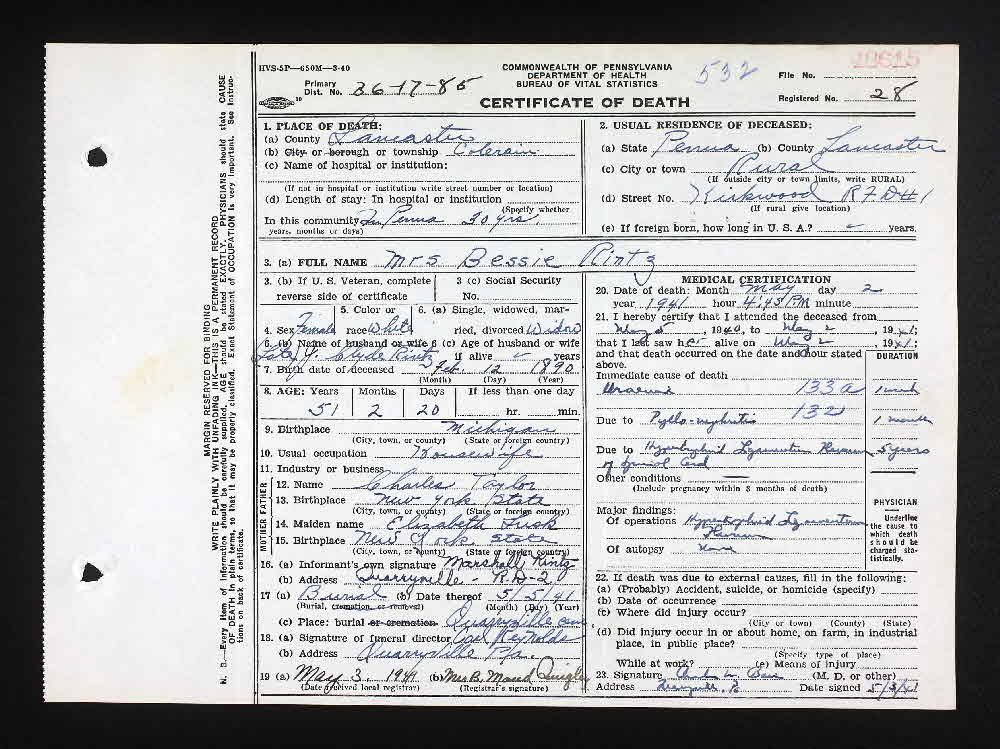 HVS-5P—650M—3-40
COMMONWEALTH OF PENNSYLVANIA
DEPARTMENT OF HEALTH
BUREAU OF VITAL STATISTICS
CERTIFICATE OF DEATH
532
Primary Dist. No. 36-17-85
File No.
Registered No. 28
MARGIN RESERVED FOR BINDING
WRITE PLAINLY WITH UNFADING INK—THIS IS A PERMANENT RECORD
N. B.—Every item of information should be carefully supplied. AGE should be stated EXACTLY. PHYSICIANS should state CAUSE
OF DEATH in plain terms, so that it may be properly classified. Exact Statement of OCCUPATION is very important. See instruc-
tions on back of certificate.
1. PLACE OF DEATH:
(a) County Lancaster
(b) City or borough or township Colerain
(c) Name of hospital or institution:
(If not in hospital or institution write street number or location)
(d) Length of stay: In hospital or institution
(Specify whether
In this community In Penna 30 yrs.
years, months or days)
2. USUAL RESIDENCE OF DECEASED:
(a) State Penna (b) County Lancaster
(c) City or town Rural
(If outside city or town limits, write RURAL)
(d) Street No. Kirkwood R F D #1
(If rural give location)
(e) If foreign born, how long in U. S. A.? years.
3. (a) FULL NAME Mrs Bessie Rintz
3. (b) If U. S. Veteran, complete
reverse side of certificate
3 (c) Social Security
No.
4. Sex Female
5. Color or
race White
6. (a) Single, widowed, mar-
ried, divorced Widow
6. (b) Name of husband or wife
6 (c) Age of husband or wife
Clyde Rintz if alive years
7. Birth date of deceased Feb. 12 1890
(Month) (Day) (Year)
8. AGE: Years Months Days If less than one day
51 2 20 hr. min.
9. Birthplace Michigan
(City, town, or county) (State or foreign country)
10. Usual occupation Housewife
11. Industry or business
FATHER
12. Name Charles Taylor
13. Birthplace New York State
(City, town, or county) (State or foreign country)
MOTHER
14. Maiden name Elizabeth Lusk
15. Birthplace New York State
(City, town, or county) (State or foreign country)
16. (a) Informant's own signature Marshall Rintz
(b) Address Quarryville - R.D-2
17 (a) Burial (b) Date thereof 5/5/41
(Burial, cremation, or removal) (Month) (Day) (Year)
(c) Place: burial or cremation Quarryville cem
18. (a) Signature of funeral director Carl Reynolds
(b) Address Quarryville Pa.
19 (a) May 3. 1941 (b) Mrs B. Maud Quigley
(Date received local registrar) (Registrar's signature)
MEDICAL CERTIFICATION
20. Date of death: Month May day 2
year 1941 hour 4:45 PM minute
21. I hereby certify that I attended the deceased from
May 5, 1940, to May 2, 1941;
that I last saw her alive on May 2, 1941;
and that death occurred on the date and hour stated
above.
DURATION
Immediate cause of death
Uraemia 133a 1 week
132
Due to Pyelo-nephritis 1 month
Due to Hypertrophied Ligamentum Flavum 5 years
of spinal cord
Other conditions
(Include pregnancy within 3 months of death)
PHYSICIAN
Underline
the cause to
which death
should be
charged sta-
tistically.
Major findings:
Of operations Hypertrophied Ligamentum
Flavum
Of autopsy None
22. If death was due to external causes, fill in the following:
(a) (Probably) Accident, suicide, or homicide (specify)
(b) Date of occurrence
(c) Where did injury occur?
(City or town) (County) (State)
(d) Did injury occur in or about home, on farm, in industrial
place, in public place?
(Specify type of place)
While at work? (e) Means of injury
23. Signature (M. D. or other)
Address Date signed 5/3/41